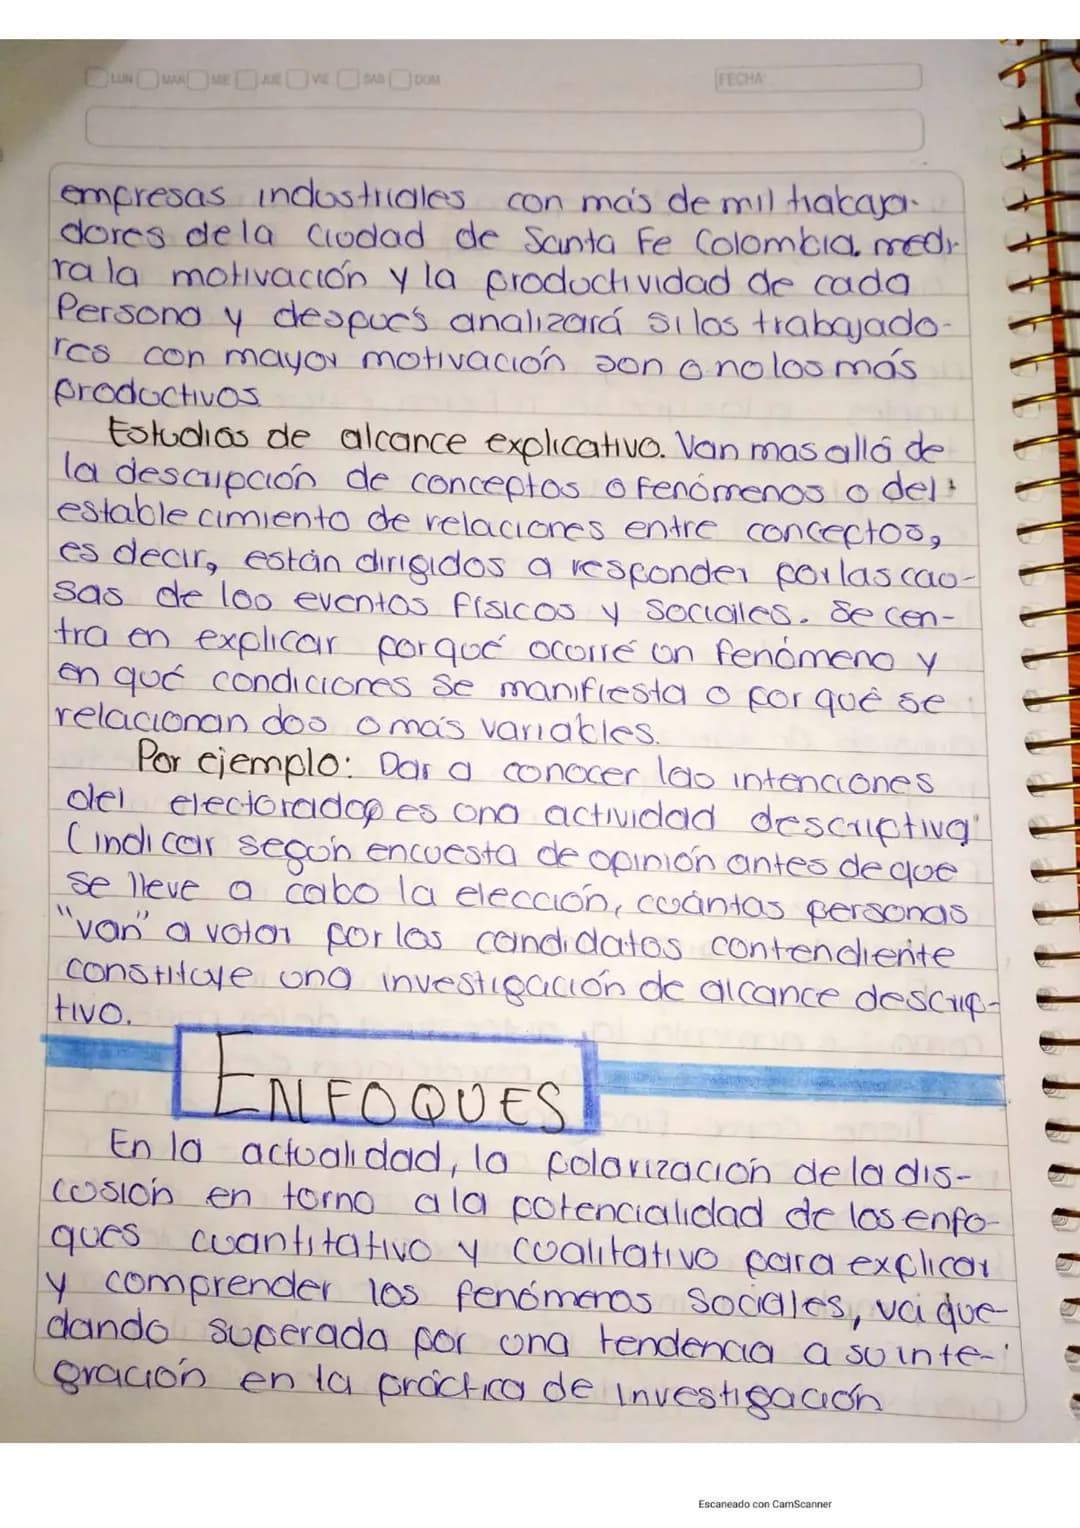 LUN MAR MIE JUE VIE SAB DOM
FECHA:
empresas industriales con más de mil trabaja-
dores de la Ciudad de Santa Fe Colombia. medi-
ra la motivación y la productividad de cada
Persona y después analizará si los trabajado-
res con mayor motivación son o no los más
productivos
Estudios de alcance explicativo. Van mas allá de
la descripción de conceptos o Fenómenos o del
establecimiento de relaciones entre conceptos,
es decir, están dirigidos a responder por las cau-
sas de los eventos Físicos y Sociales. Se cen-
tra en explicar porqué ocurré un fenómeno y
en qué condiciones se manifiesta o por qué se
relacionan dos o más variables.
Por ejemplo: Dar a conocer las intenciones
del electorado es una actividad descriptiva
(indicar según encuesta de opinión antes de que
se lleve a cabo la elección, cuántas personas
"van" a votar por los candidatos contendiente
constituye una investigación de alcance descrip-
tivo.
ENFOQUES
En la actualidad, la polarización de la dis-
cusión en torno a la potencialidad de los enfo-
ques cuantitativo y cualitativo para explicar
y comprender los fenómenos Sociales, va que-
dando superada por una tendencia a su inte-
gración en la práctica de investigación
Escaneado con CamScanner